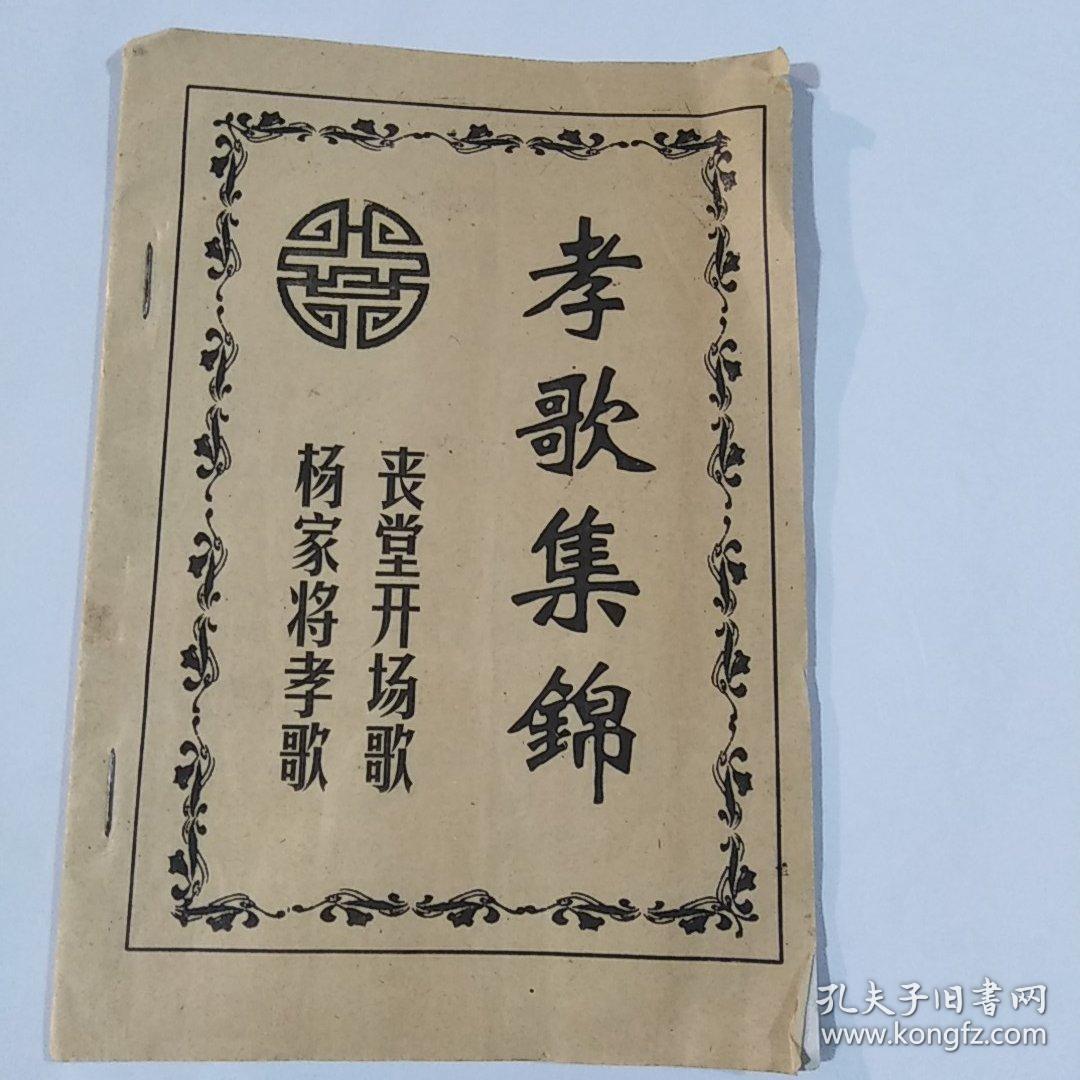 孝歌集錦
丧堂开场歌
杨家将孝歌
孔夫子旧書网
www.kongfz.com